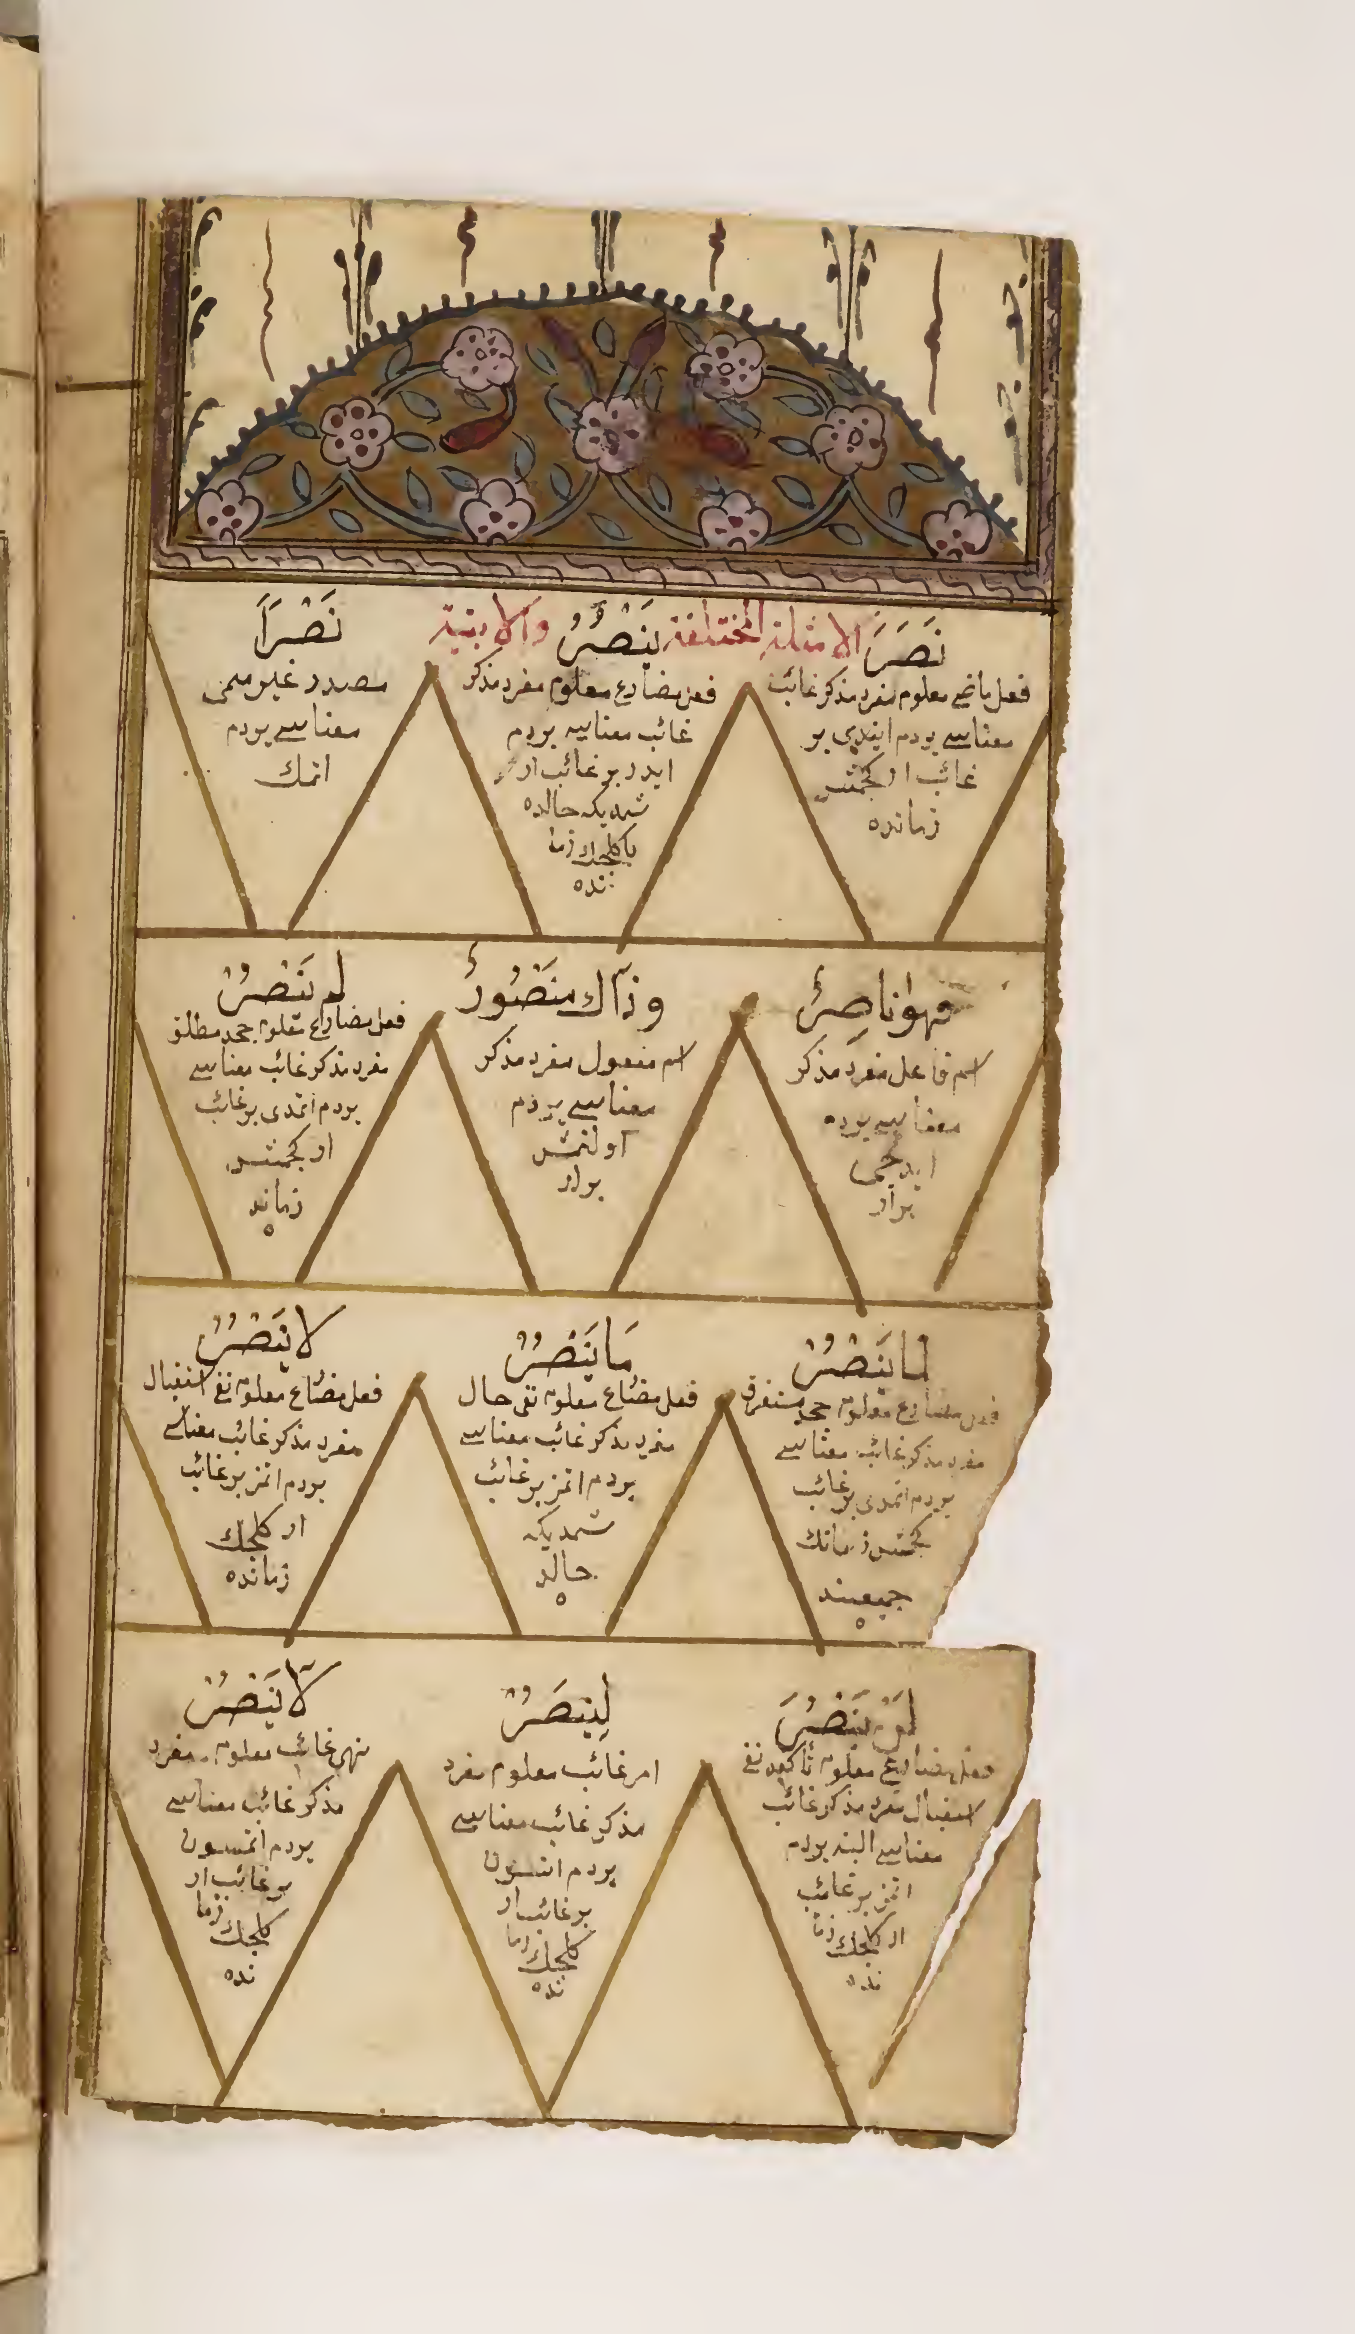 نَصَرَ
الامثلة المختلفة
يَنْصُرُ
والابنية
نَصْرًا
فعل ماضى معلوم مفرد مذكر غائب
معناسى يردم ايتدى بر
غائب ار كجمش
زمانده
فعل مضارع معلوم مفرد مذكر
غائب معناسى يردم
ايدر بر غائب ار
شمديكى حالده
يا كلجك زما
نده
مصدر غير ميمى
معناسى يردم
اتمك
فهو ناصِرٌ
اسم فاعل مفرد مذكر
معناسى يردم
ايديجى
بر ار
وذاك مَنْصُورٌ
اسم مفعول مفرد مذكر
معناسى يردم
اولنمش
بر ار
لم يَنْصُرْ
فعل مضارع معلوم جحد مطلق
مفرد مذكر غائب معناسى
يردم اتمدى بر غائب
ار كجمش
زمانده
لما يَنْصُرْ
فعل مضارع معلوم جحد مستغرق
مفرد مذكر غائب معناسى
يردم اتمدى بر غائب
كجمش زمانك
جميعنده
مَا يَنْصُرُ
فعل مضارع معلوم نفى حال
مفرد مذكر غائب معناسى
يردم اتمز بر غائب
شمديكى
حالده
لا يَنْصُرُ
فعل مضارع معلوم نفى استقبال
مفرد مذكر غائب معناسى
يردم اتمز بر غائب
ار كلجك
زمانده
لَنْ يَنْصُرَ
فعل مضارع معلوم تأكيد نفى
استقبال مفرد مذكر غائب
معناسى البته يردم
اتمز بر غائب
ار كلجك زما
نده
لِيَنْصُرْ
امر غائب معلوم مفرد
مذكر غائب معناسى
يردم اتسون
بر غائب ار
كلجك زما
نده
لَا يَنْصُرْ
نهى غائب معلوم مفرد
مذكر غائب معناسى
يردم اتمسون
بر غائب ار
كلجك زما
نده